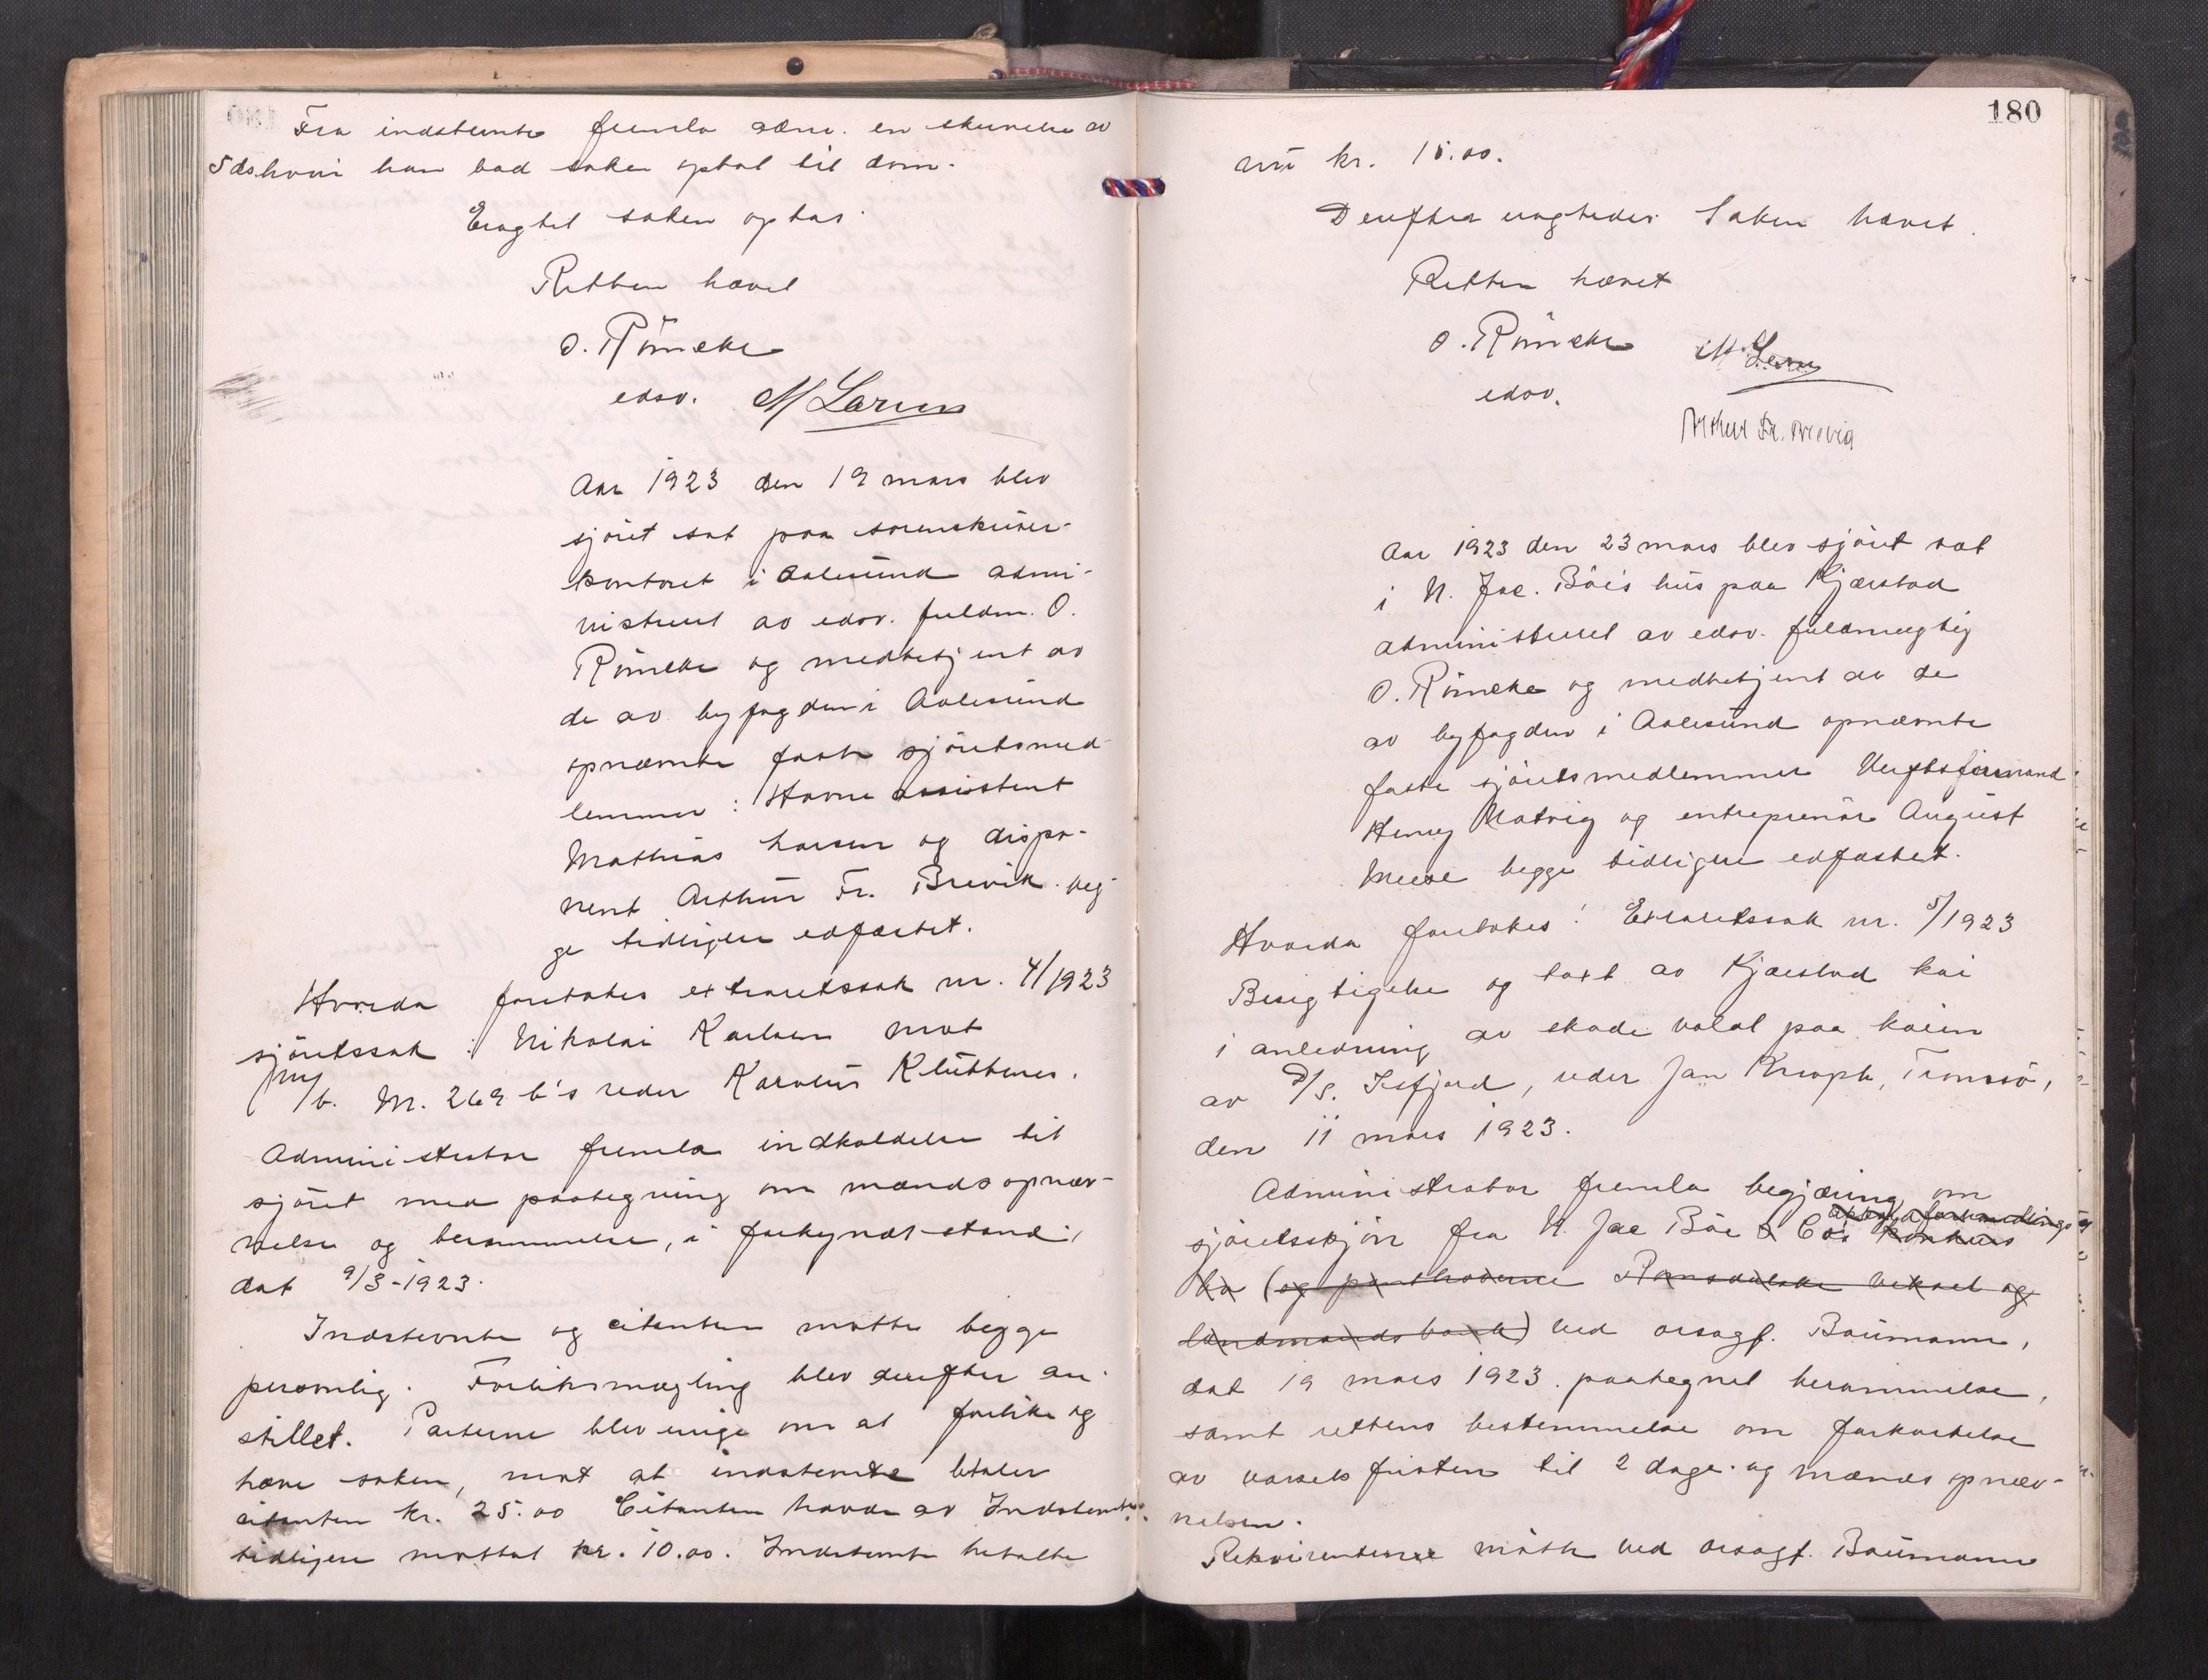 Fra indstevnte fremla adm. en skrivelse av
5 ds hvori han bad saken optat til dom.
Eragtet saken optas.
Retten hævet
O. Römcke
edsv. M Larsen
Aar 1923 den 19 mars blev
sjöret sat paa sorenskriver-
kontoret i Aalesund admi-
nistreret av edsv. fuldm. O.
Römcke og medbetjent av
de av byfogden i Aalesund
opnævnte faste sjöretsmed-
lemmer: Havneassistent
Mathias Larsen og dispo-
nent Arthur Fr. Brevik beg-
ge tidligere edfæstet.
Hvorda foretokes extraretssak nr. 4/1923
sjöretssak: Nikolai Karlsen mot
m/b. M. 269 b's reder Karolus Klüttenes.
Administrator fremla indkaldelse til
sjöret med paategning om mændsopnæv-
nelse og berammelse, i forkyndt stand,
dat 9/3-1923.
Indstevnte og citanten mötte begge
personlig. Forliksmægling blev derefter an-
stillet. Parterne blev enige om at forlike og
hæve saken, mot at indstevnte betaler
citanten kr. 25.00 Citanten havde av Indstevnte
tidligere mottat kr. 10.00. Indstevnte betalte
180
nu kr. 15.00.
Derefter eragtedes Saken hævet.
Retten hævet
O. Römcke M. Larsen
edsv.
Arthur Fr. Brevig
Aar 1923 den 23 mars blev sjöret sat
i N. Jac. Böe's hus paa Kjærstad
administreret av edsv. fuldmægtig
O. Römcke og medbetjent av de
av byfogden i Aalesund opnævnte
faste sjöretsmedlemmer Verftsformand
Henry Matvig og entreprenör August
begge tidligere edfæstet.
Hvorda foretokes: Extraretssak nr. 5/1923
Besigtigelse og taxt av Kjærstad kai
i anledning av skade voldt paa kaien
av D/S. Isfjord, reder Jan Kræpk, Tromsö,
den 11 mars 1923.
Administrator fremla begjæring om
akkordforhandlings
sjöretsskjön fra N. Jac Böe & Co's konkurs
bo (og panthaverne Romsdalske veksel og
landmandsbank) ved orsagf. Baumann,
dat 19 mars 1923. paategnet berammelse,
samt rettens bestemmelse om forkortelse
av varselsfristen til 2 dage og mændsopnæv-
nelsen.
Rekvirenterne mötte ved orsagf. Baumann